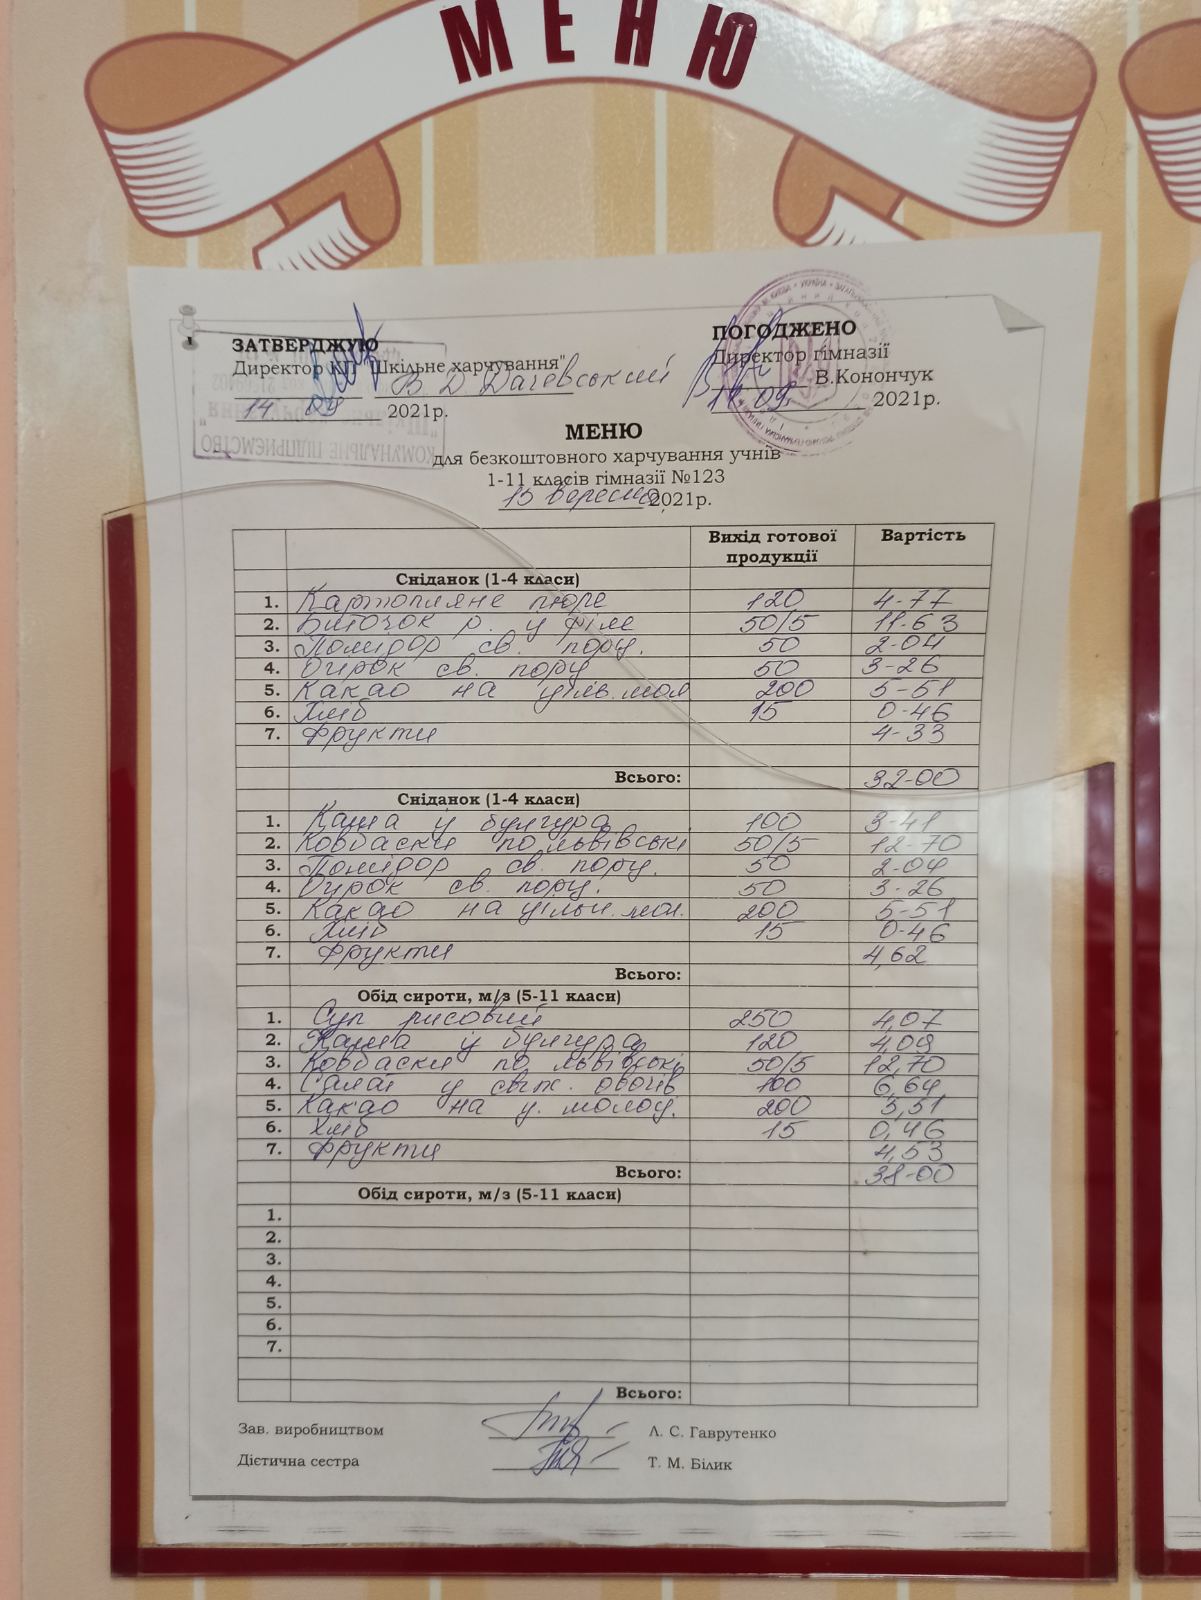 МЕНЮ
ЗАТВЕРДЖУЮ
Директор КП " Шкільне харчування"
В. Д. Дачевський
14 09 2021р.
КОМУНАЛЬНЕ ПІДПРИЄМСТВО
ПОГОДЖЕНО
Директор гімназії
В.Конончук
14 09. 2021р.
МЕНЮ
для безкоштовного харчування учнів
1-11 класів гімназії №123
15 вересня 2021р.
Вихід готової продукції Вартість
Сніданок (1-4 класи)
1. Картопляне пюре 120 4-77
2. Биточок р. у філе 50/5 11-63
3. Помідор св. порц. 50 2-04
4. Огірок св. порц 50 3-26
5. Какао на цільн. мол 200 5-51
6. Хліб 15 0-46
7. Фрукти 4-33
Всього: 32-00
Сніданок (1-4 класи)
1. Каша з булгура 100 3-41
2. Ковбаски по львівські 50/5 12-70
3. Помідор св. порц. 50 2-04
4. Огірок св. порц. 50 3-26
5. Какао на цільн. мол. 200 5-51
6. Хліб 15 0-46
7. Фрукти 4,62
Всього:
Обід сироти, м/з (5-11 класи)
1. Суп рисовий 250 4,07
2. Каша з булгура 120 4,09
3. Ковбаски по львівські 50/5 12,70
4. Салат з свіж. овочів 100 6,64
5. Какао на ц. молоц. 200 5,51
6. Хліб 15 0,46
7. Фрукти 4,53
Всього: 38-00
Обід сироти, м/з (5-11 класи)
1.
2.
3.
4.
5.
6.
7.
Всього:
Зав. виробництвом Л. С. Гаврутенко
Дієтична сестра Т. М. Білик